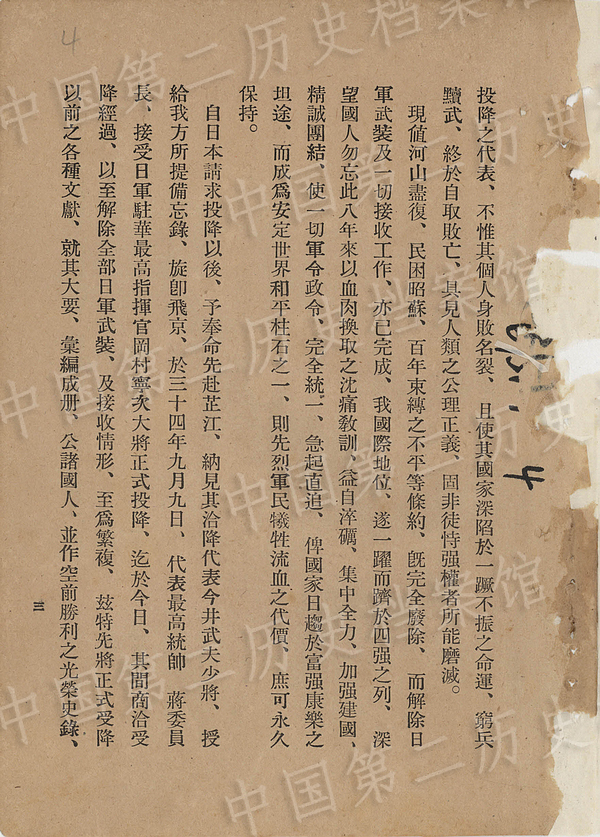 投降之代表、不惟其個人身敗名裂、且使其國家深陷於一蹶不振之命運、窮兵
黷武、終於自取敗亡、具見人類之公理正義、固非徒恃强權者所能磨滅。
現値河山盡復、民困昭蘇、百年束縛之不平等條約、旣完全廢除、而解除日
軍武裝及一切接收工作、亦已完成、我國際地位、遂一躍而躋於四强之列、深
望國人勿忘此八年來以血肉換取之沈痛敎訓、益自淬礪、集中全力、加强建國、
精誠團結、使一切軍令政令、完全統一、急起直追、俾國家日趨於富强康樂之
坦途、而成爲安定世界和平柱石之一、則先烈軍民犧牲流血之代價、庶可永久
保持。
自日本請求投降以後、予奉命先赴芷江、納見其洽降代表今井武夫少將、授
給我方所提備忘錄、旋卽飛京、於三十四年九月九日、代表最高統帥　蔣委員
長、接受日軍駐華最高指揮官岡村寧次大將正式投降、迄於今日、其間商洽受
降經過、以至解除全部日軍武裝、及接收情形、至爲繁複、玆特先將正式受降
以前之各種文獻、就其大要、彙編成册、公諸國人、並作空前勝利之光榮史錄、
三
4
4
中国第二历史档案馆
中国第二历史档案馆
中国第二历史档案馆
中国第二历史档案馆